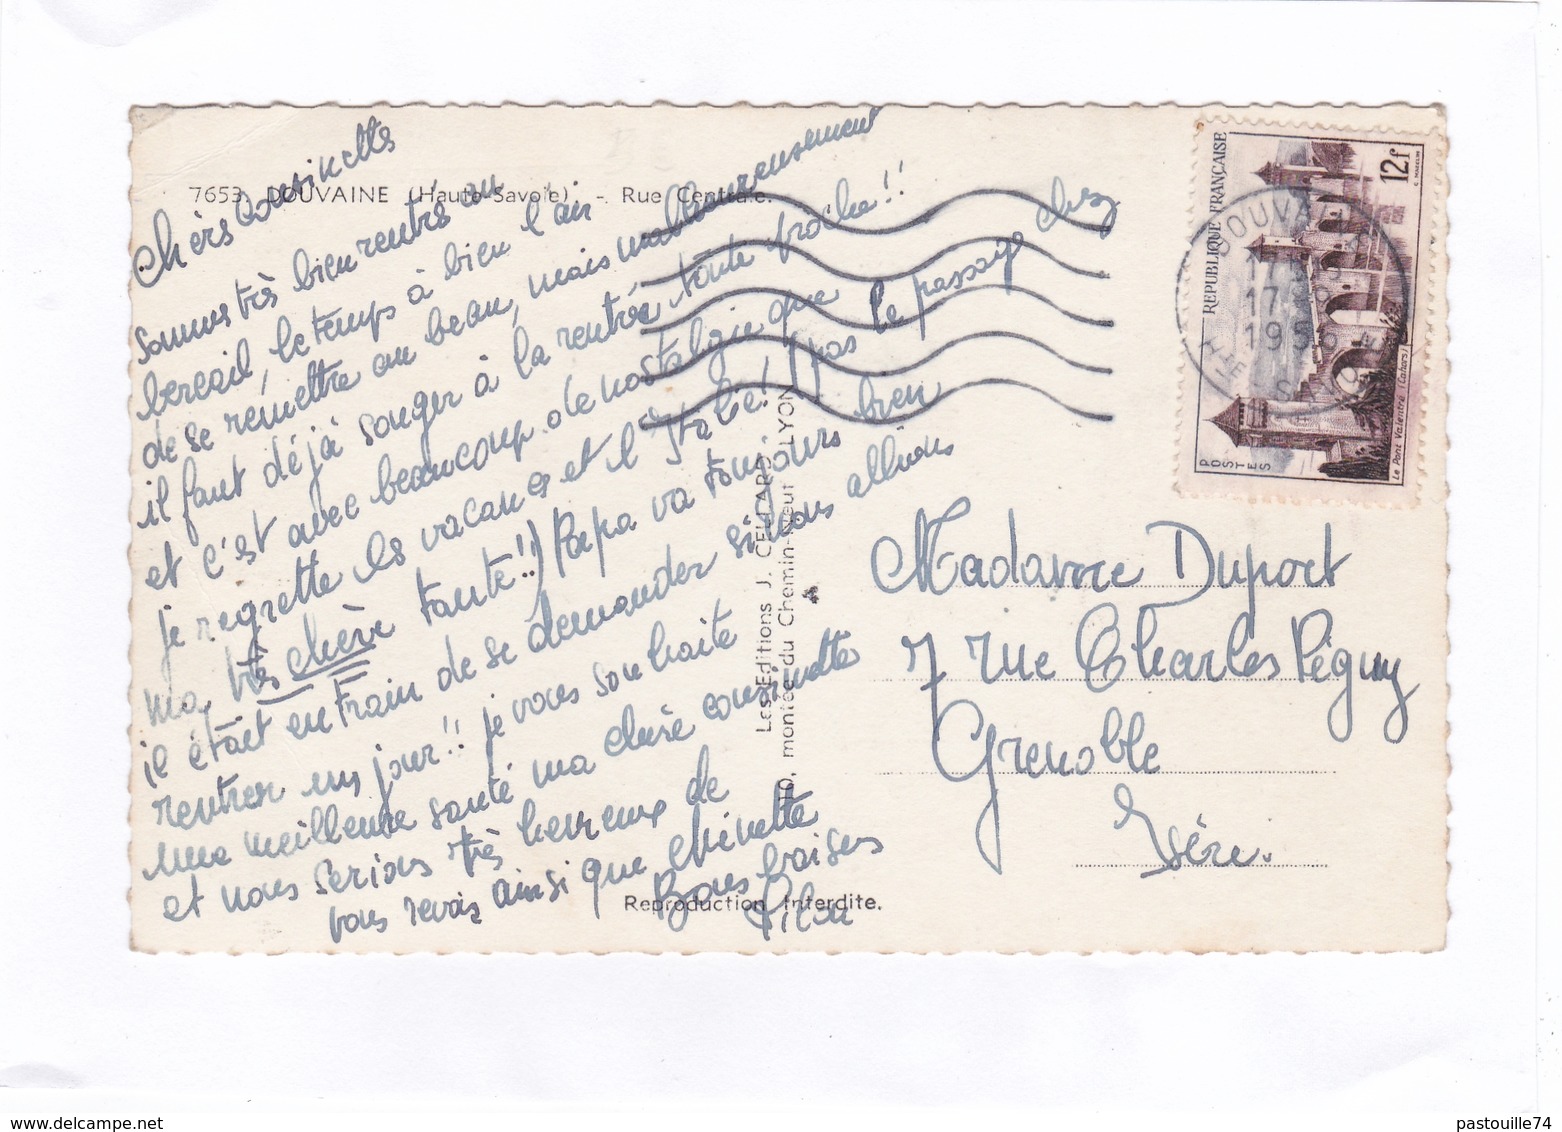 7653. DOUVAINE (Haute-Savoie) - Rue Centrale.
Chers cousinette
sommes très bien rentrés au
bercail, le temps à bien l'air
de se remettre au beau, mais malheureusement
il faut déjà songer à la rentrée toute proche!!
et c'est avec beaucoup de nostalgie que
je regrette les vacances et l'Italie! (pas le passage chez
ma très chère tante!!) Papa va toujours bien
il était en train de se demander si nous allions
rentrer un jour!! je vous souhaite
une meilleure santé ma chère cousinette
et nous serions très heureux de
vous revoir ainsi que Minette
Bons baisers
Reproduction Interdite.
Les Editions J. CELLARD
10, montée du Chemin-Neuf LYON
REPUBLIQUE FRANÇAISE
12f
POSTES
Le Pont Valentré (Cahors)
DOUVAINE
17
17
195
HTE SAVOIE
Madame Duport
7 rue Charles Péguy
Grenoble
Isère.
pastouille74